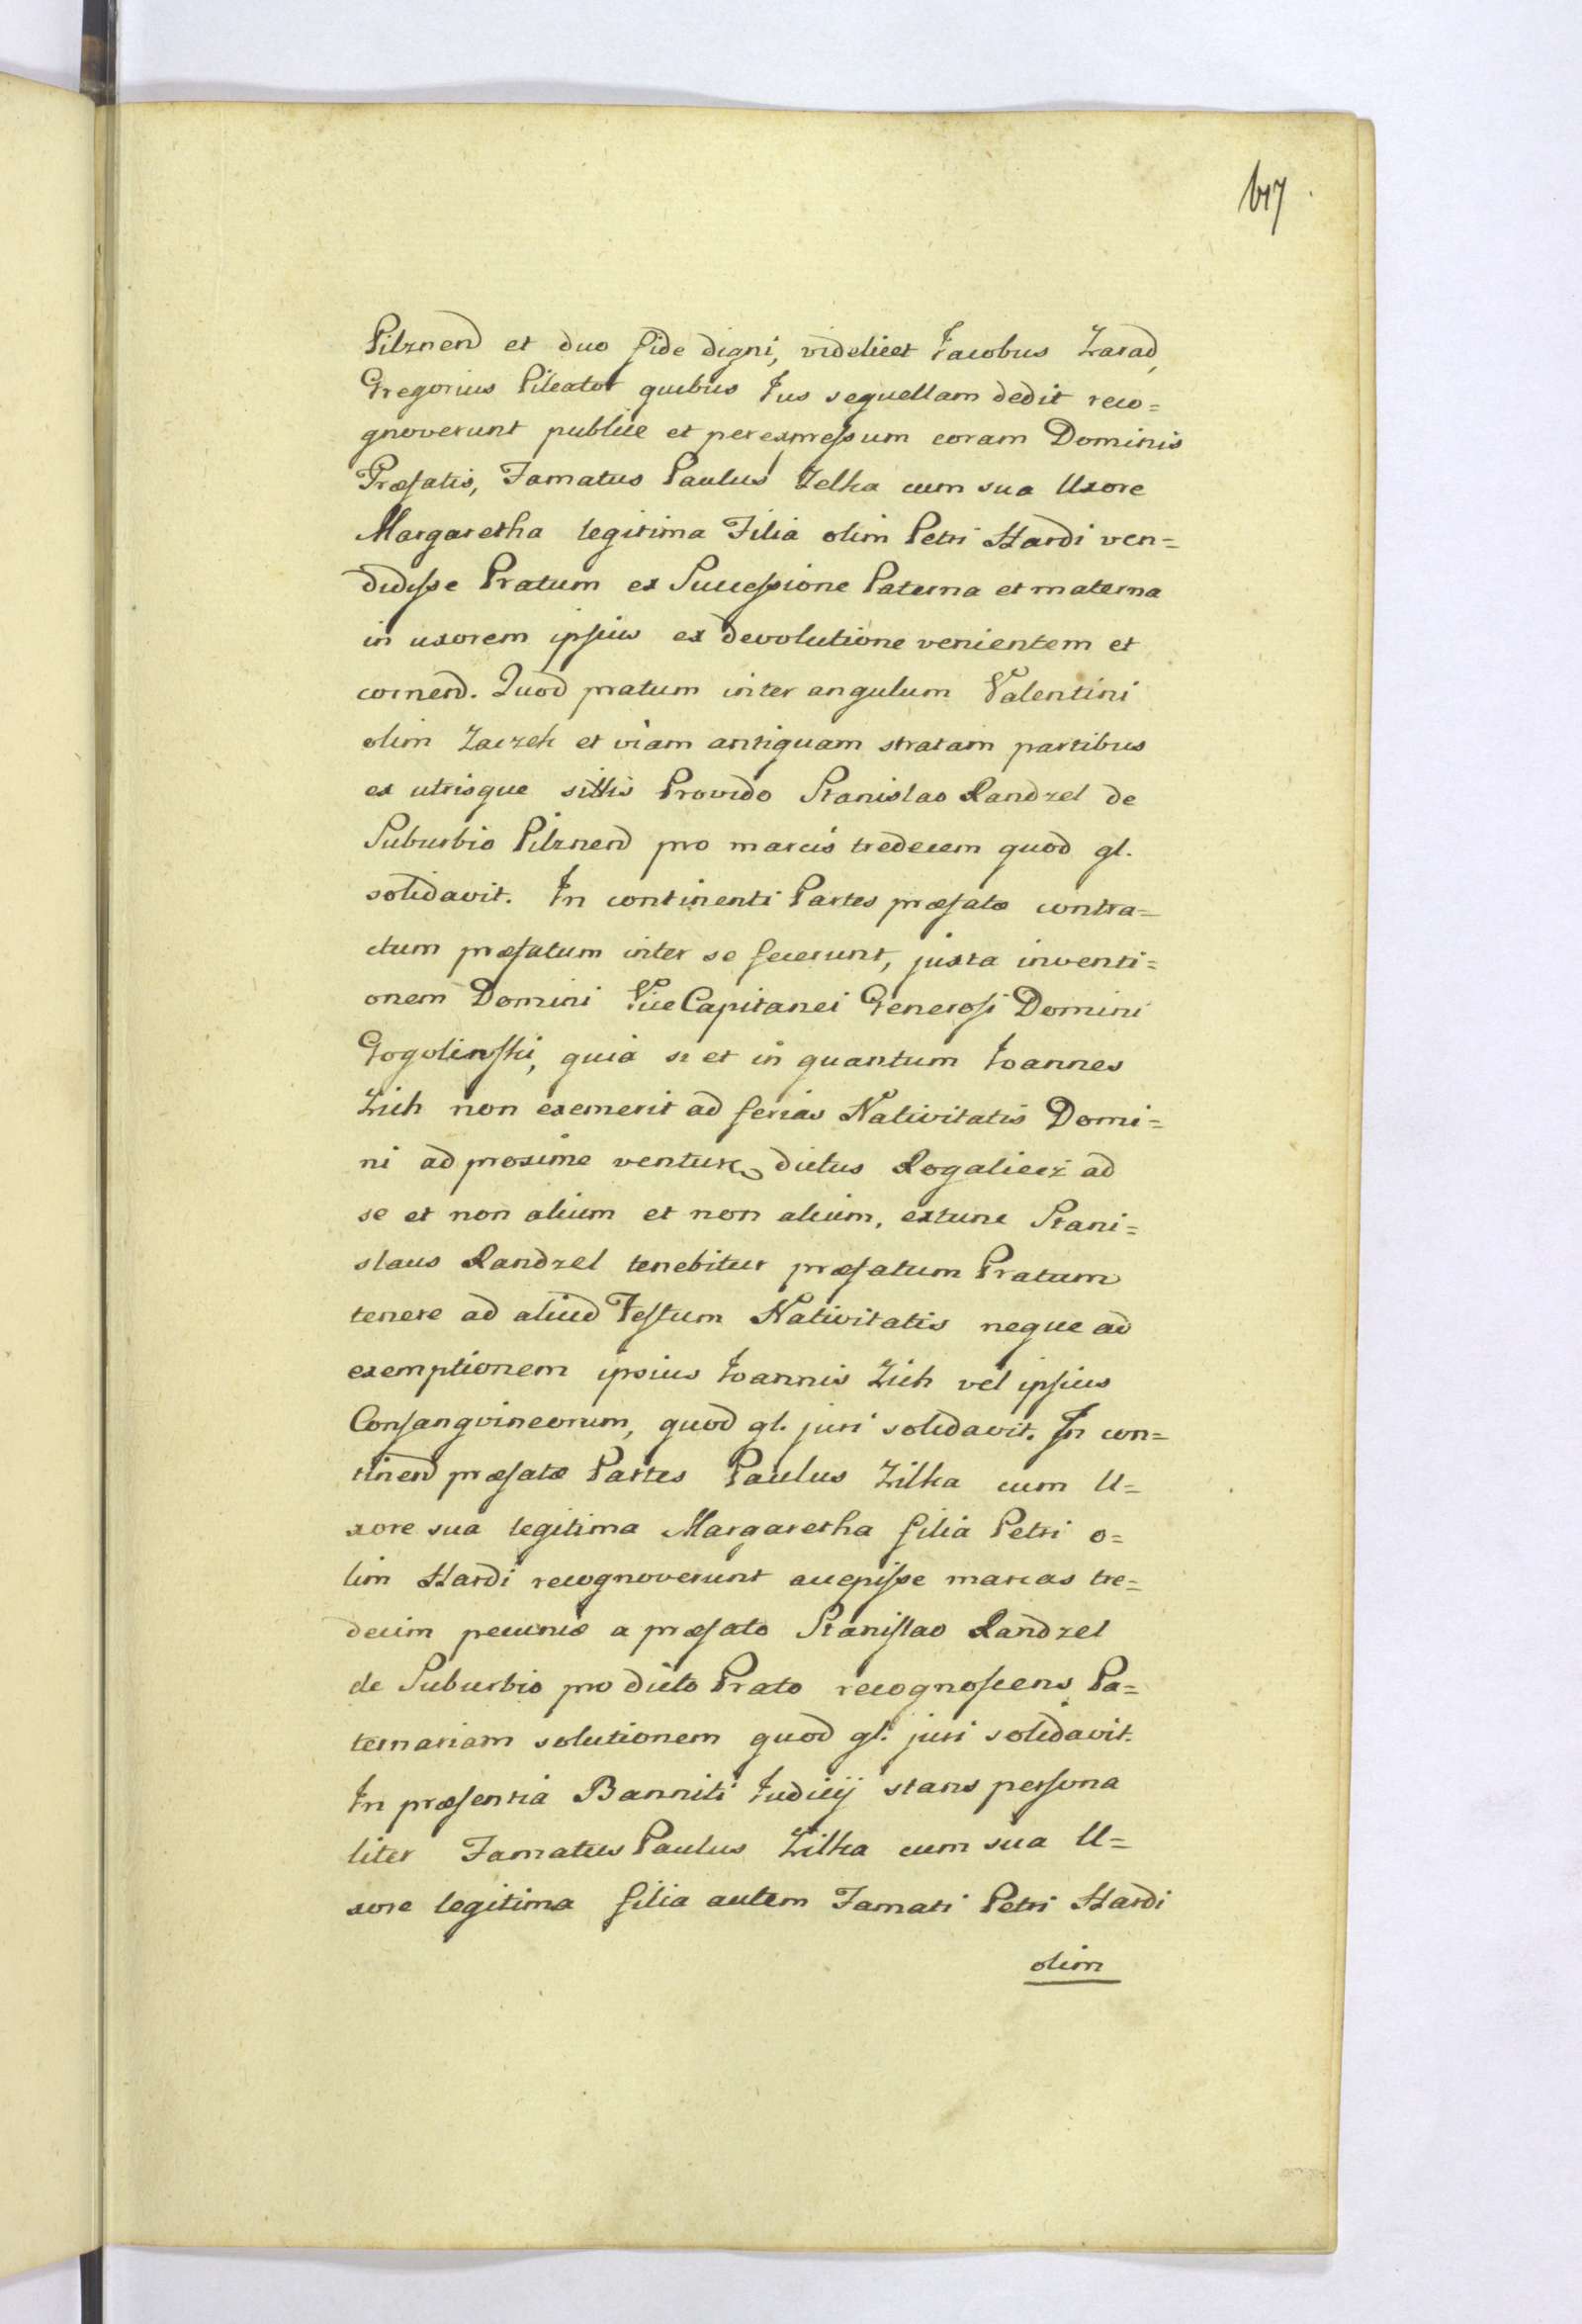 617.
Pilznend et duo fide digni, videlicet Jacobus Zarad,
Gregorius Pileator quibus Jus sequellam dedit reco=
gnoverunt publice et perexpressum coram Dominis
Præfatis, Famatus Paulus Zelka cum sua Uxore
Margaretha legitima Filia olim Petri Hardi ven=
didisse Pratum ex Successione Paterna et materna
in uxorem ipsius ex devolutione venientem et
cornend. Quod pratum inter angulum Valentini
olim Zaczek et viam antiquam stratam partibus
ex utrisque sittis Provido Stanislao Randzel de
Suburbio Pilznend pro marcis tredecem quod gl.
solidavit. In continenti Partes præfatæ contra=
ctum præfatum inter se fecerunt, juxta inventi=
onem Domini ViceCapitanei Generosi Domini
Gogolinski, quia si et in quantum Joannes
Zich non exemerit ad ferias Nativitatis Domi=
ni ad proxime ventur dictus Rogaliecz ad
se et non alium et non alium, extunc Stani=
slaus Randzel tenebitur præfatum Pratum
tenere ad aliud Festum Nativitatis neque ad
exemptionem ipsius Joannis Zich vel ipsius
Consangvineorum, quod gl. juri solidavit. In con=
tinend præfatæ Partes Paulus Zilka cum U=
xore sua legitima Margaretha filia Petri o=
lim Hardi recognoverunt accepisse marcas tre=
decim pecuniæ a præfato Stanislao Randzel
de Suburbio pro dicto Prato recognoscens Pa=
ternariam solutionem quod gl. juri solidavit.
In præsentia Banniti Judicij stans persona
liter Famatus Paulus Zilka cum sua U=
xore legitima filia autem Famati Petri Hardi
olim